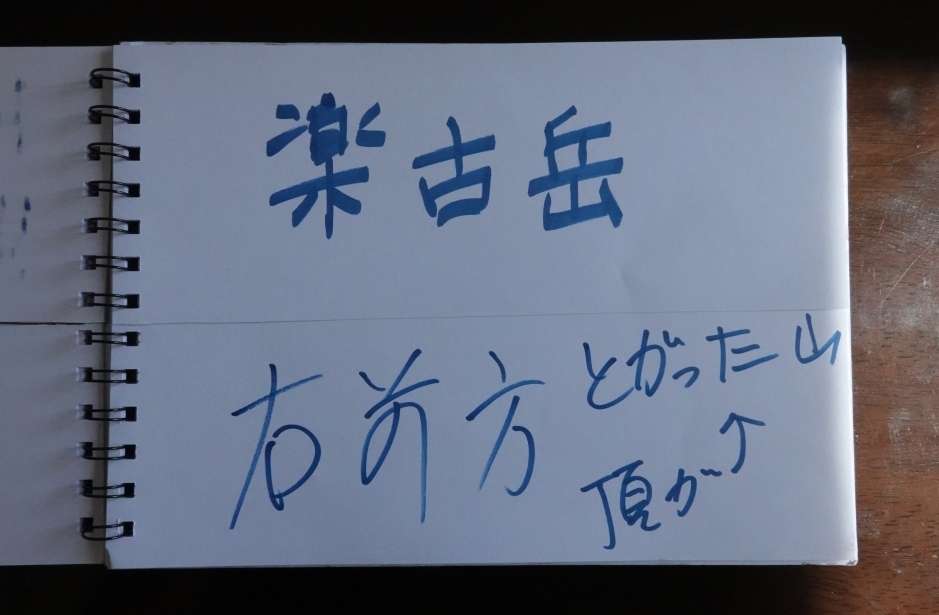 楽古岳
右前方 とがった山
頂が↑